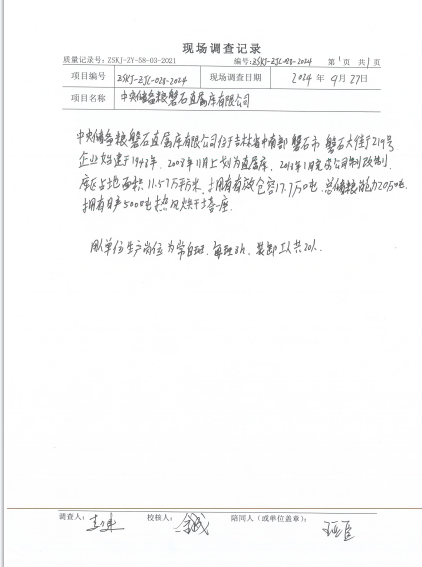 现场调查记录
质量记录号：ZSKJ-ZY-58-03-2021 编号：ZSKJ-ZJC-028-2024 第1页 共1页
项目编号 ZSKJ-ZJC-028-2024 现场调查日期 2024年9月27日
项目名称 中央储备粮磐石直属库有限公司
中央储备粮磐石直属库有限公司位于吉林省中南部磐石市磐石大街219号
企业始建于1948年、2003年11月上划为直属库、2018年1月完成公司制改制、
库区占地面积11.57万平方米、拥有有效仓容17.7万吨、总储粮能力20万吨、
拥有日产500吨热风烘干塔一座.
用人单位生产岗位为常白班，每班8h，装卸工人共20人.
调查人： 校核人： 陪同人（或单位盖章）：